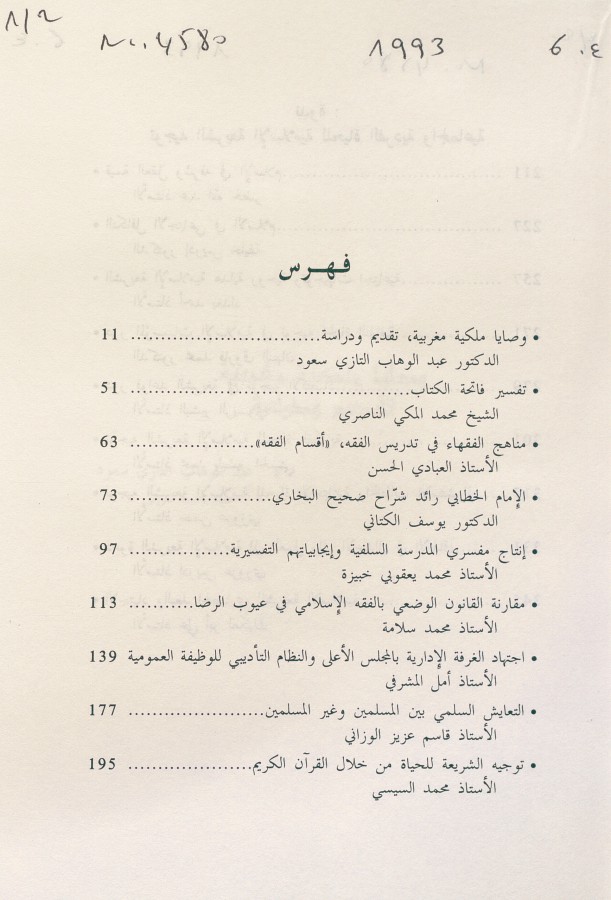 1/2
N°. 4580 1993 ع. 6
فهرس
• وصايا ملكية مغربية، تقديم ودراسة............................ 11
الدكتور عبد الوهاب التازي سعود
• تفسير فاتحة الكتاب........................................ 51
الشيخ محمد المكي الناصري
• مناهج الفقهاء في تدريس الفقه، «أقسام الفقه».................... 63
الأستاذ العبادي الحسن
• الإمام الخطابي رائد شرّاح صحيح البخاري.................... 73
الدكتور يوسف الكتاني
• إنتاج مفسري المدرسة السلفية وإيجابياتهم التفسيرية............... 97
الأستاذ محمد يعقوبي خبيزة
• مقارنة القانون الوضعي بالفقه الإسلامي في عيوب الرضا.......... 113
الأستاذ محمد سلامة
• اجتهاد الغرفة الإدارية بالمجلس الأعلى والنظام التأديبي للوظيفة العمومية 139
الأستاذ أمل المشرفي
• التعايش السلمي بين المسلمين وغير المسلمين...................... 177
الأستاذ قاسم عزيز الوزاني
• توجيه الشريعة للحياة من خلال القرآن الكريم.................... 195
الأستاذ محمد السيسي